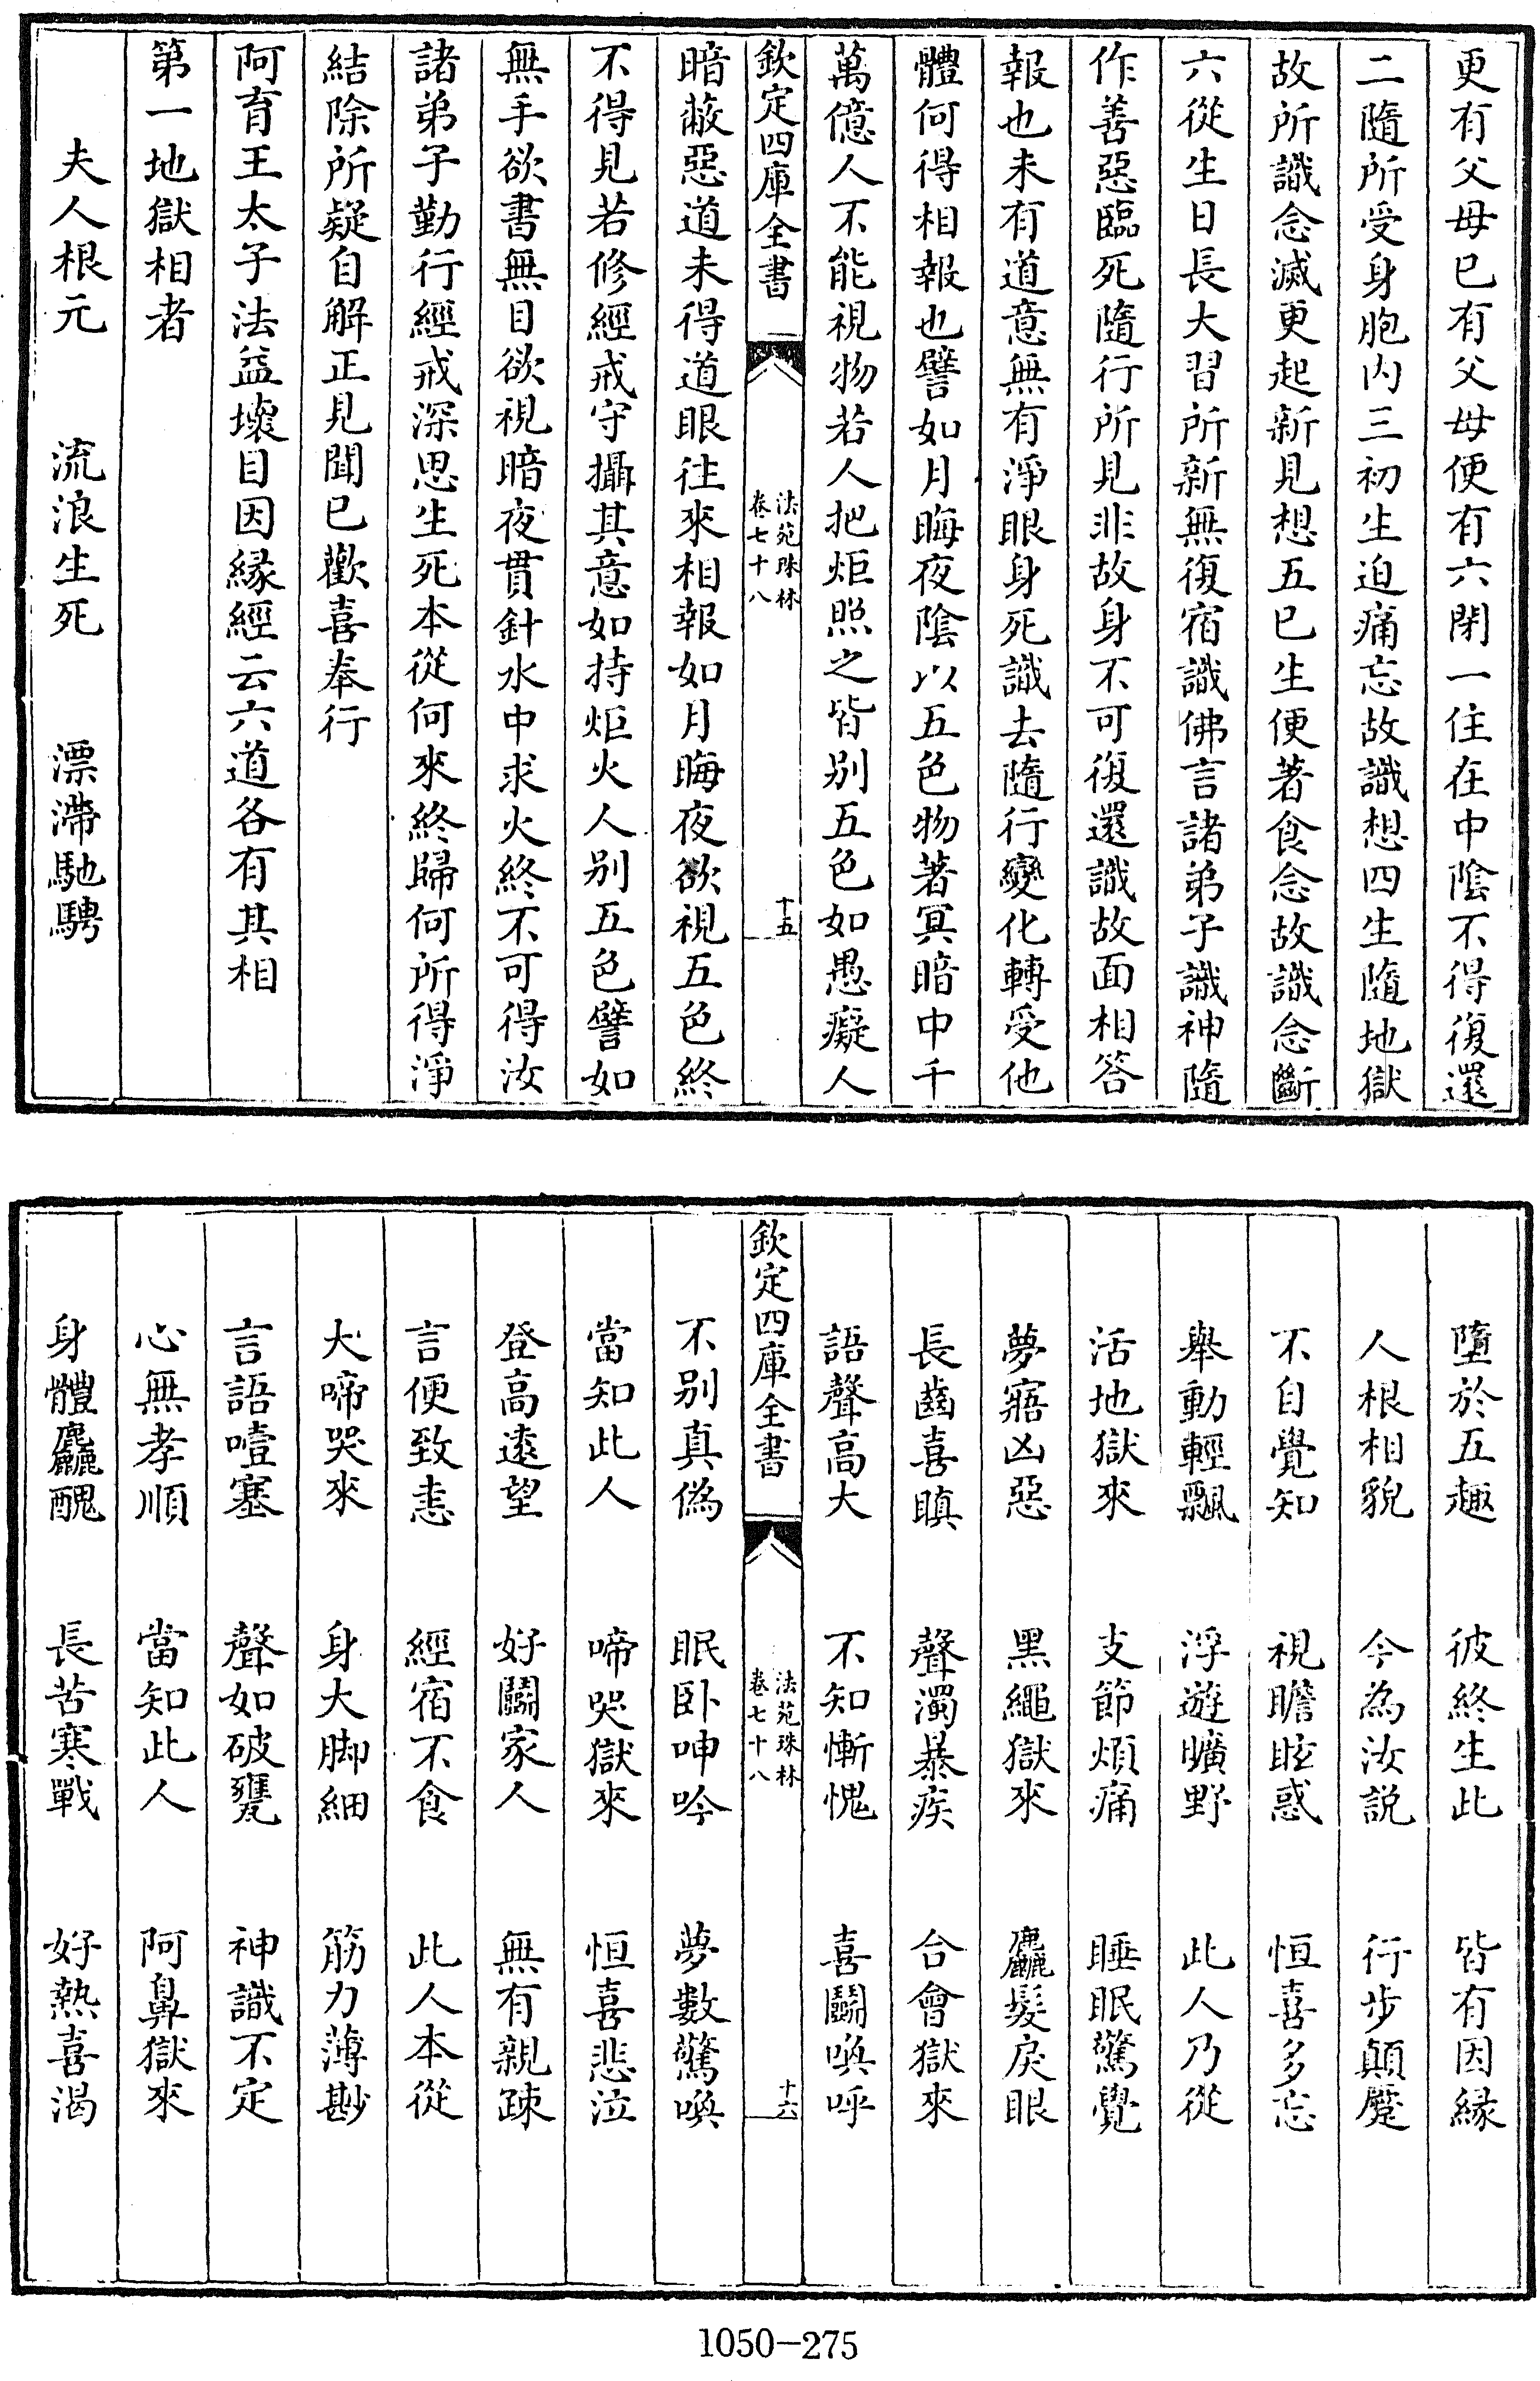 更有父母已有父母便有六閉一住在中隂不得復還
二隨所受身胞内三初生迫痛忘故識想四生隨地獄
故所識念滅更起新見想五已生便著食念故識念斷
六從生日長大習所新無復宿識佛言諸弟子識神隨
作善惡臨死隨行所見非故身不可復還識故面相答
報也未有道意無有淨眼身死識去隨行變化轉受他
體何得相報也譬如月晦夜隂以五色物著冥暗中千
萬億人不能視物若人把炬照之皆别五色如愚癡人
欽定四庫全書 法苑珠林卷七十八 十五
暗蔽惡道未得道眼往來相報如月晦夜欲視五色終
不得見若修經戒守攝其意如持炬火人别五色譬如
無手欲書無目欲視暗夜貫針水中求火終不可得汝
諸弟子勤行經戒深思生死本從何來終歸何所得淨
結除所疑自解正見聞已歡喜奉行
阿育王太子法益壞目因緣經云六道各有其相
第一地獄相者
夫人根元 流浪生死 漂滯馳騁
墮於五趣 彼終生此 皆有因緣
人根相貌 今為汝説 行步顛蹷
不自覺知 視瞻眩惑 恒喜多忘
舉動輕飄 浮遊曠野 此人乃從
活地獄來 支節煩痛 睡眠驚覺
夢寤凶惡 黑繩獄來 麤髮戾眼
長齒喜瞋 聲濁暴疾 合會獄來
語聲高大 不知慚愧 喜鬭喚呼
欽定四庫全書 法苑珠林卷七十八 十六
不别真偽 眠卧呻吟 夢數驚喚
當知此人 啼哭獄來 恒喜悲泣
登高遠望 好鬭家人 無有親疎
言便致恚 經宿不食 此人本從
大啼哭來 身大脚細 筋力薄尠
言語噎塞 聲如破甕 神識不定
心無孝順 當知此人 阿鼻獄來
身體麤醜 長苦寒戰 好熱喜渴
1050-275